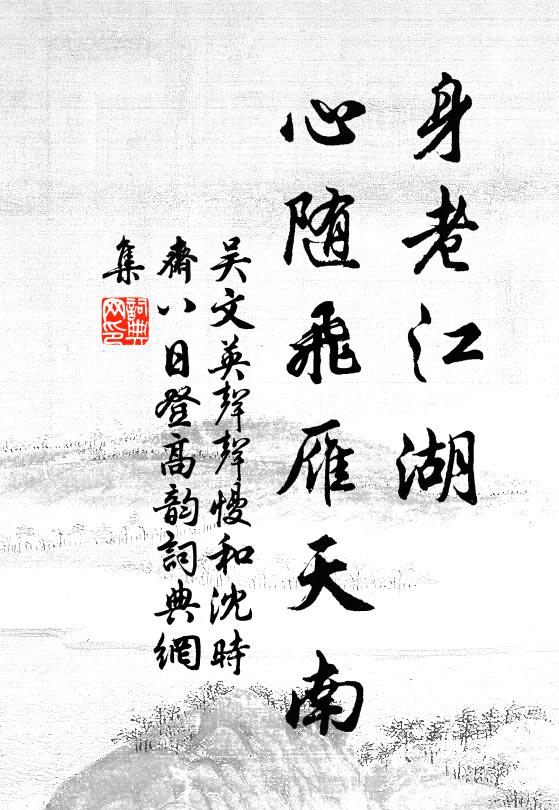 身老江湖
心随飛雁天南
吴文英聲聲慢和沈時
齋八日登高韵詞典網
集
詞典网印